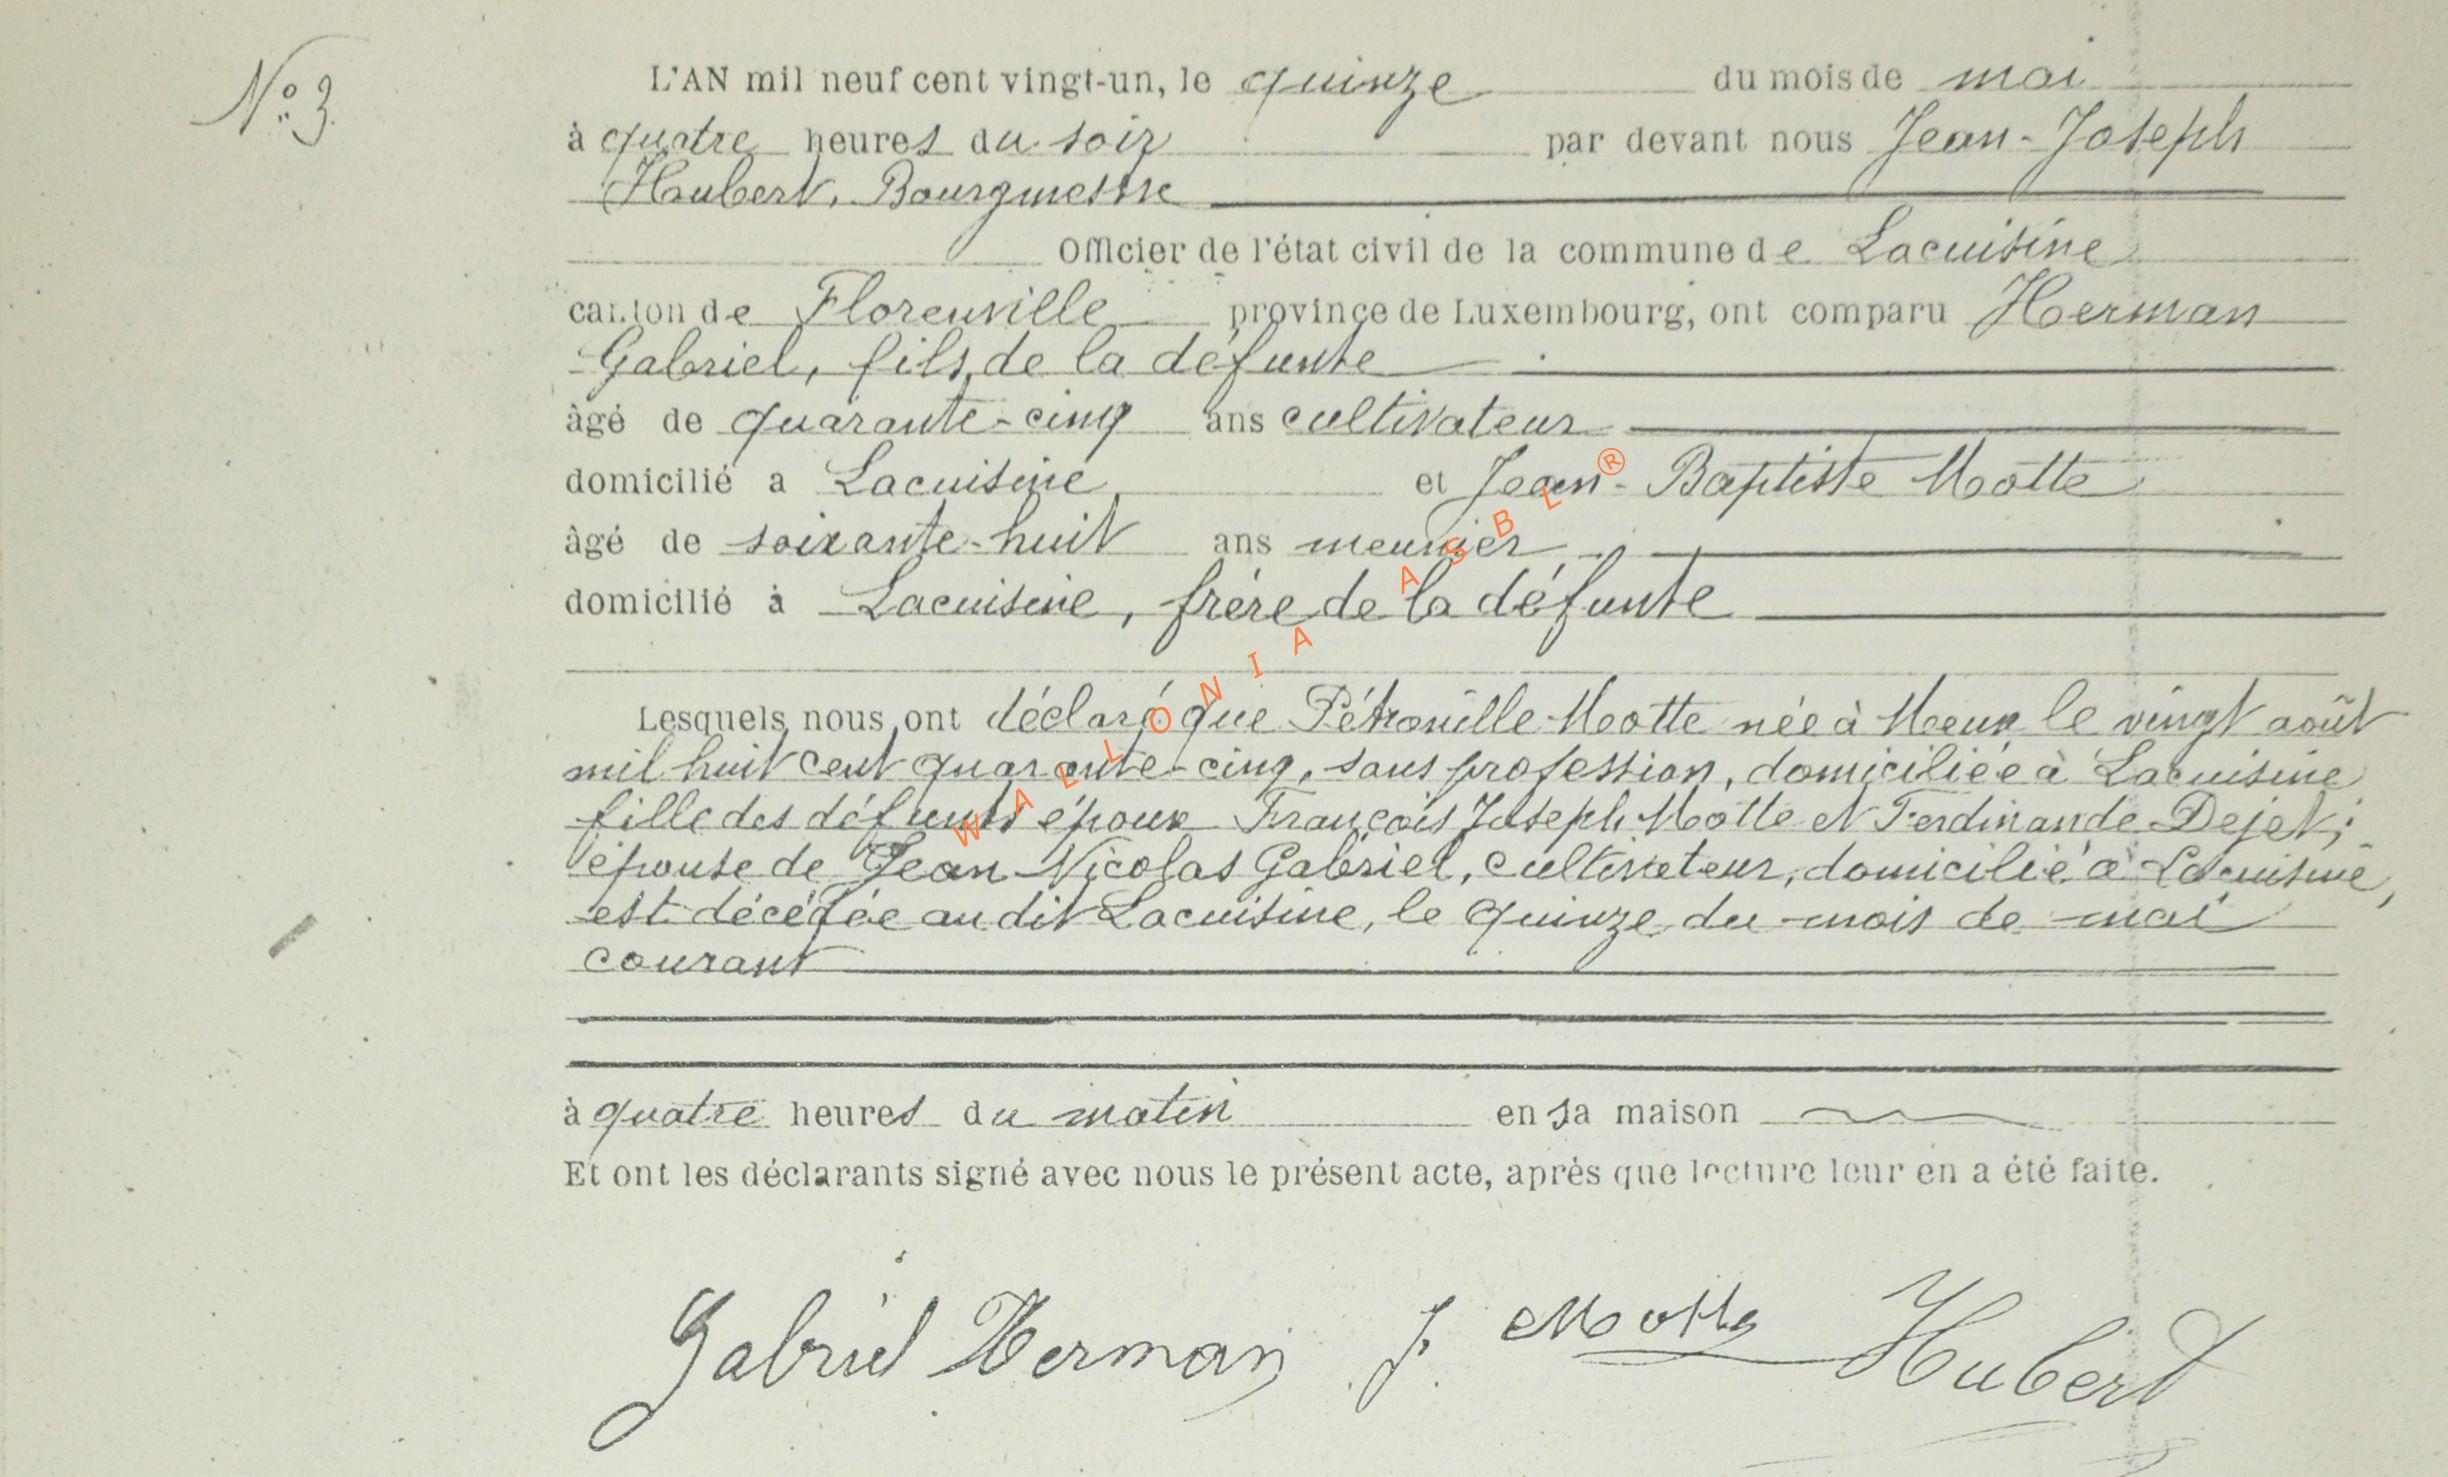 N° 3.
L'AN mil neuf cent vingt-un, le quinze du mois de mai
à quatre heures du soir par devant nous Jean-Joseph
Hubert, Bourgmestre
Officier de l'état civil de la commune de Lacuisine
canton de Florenville province de Luxembourg, ont comparu Herman
Gabriel, fils de la défunte
âgé de quarante-cinq ans cultivateur
domicilié a Lacuisine et Jean-Baptiste Motte
âgé de soixante-huit ans meunier,
domicilié à Lacuisine, frère de la défunte
Lesquels nous ont déclaré que Pétronille Motte née à Meux le vingt août
mil huit cent quarante-cinq, sans profession, domiciliée à Lacuisine
fille des défunts époux François Joseph Motte et Ferdinande Dejet;
épouse de Jean Nicolas Gabriel, cultivateur, domicilié à Lacuisine,
est décédée au dit Lacuisine, le quinze du mois de mai
courant
à quatre heures du matin en sa maison
Et ont les déclarants signé avec nous le présent acte, après que lecture leur en a été faite.
Gabriel Herman J. Motte Hubert
WALLONIA ASBL®